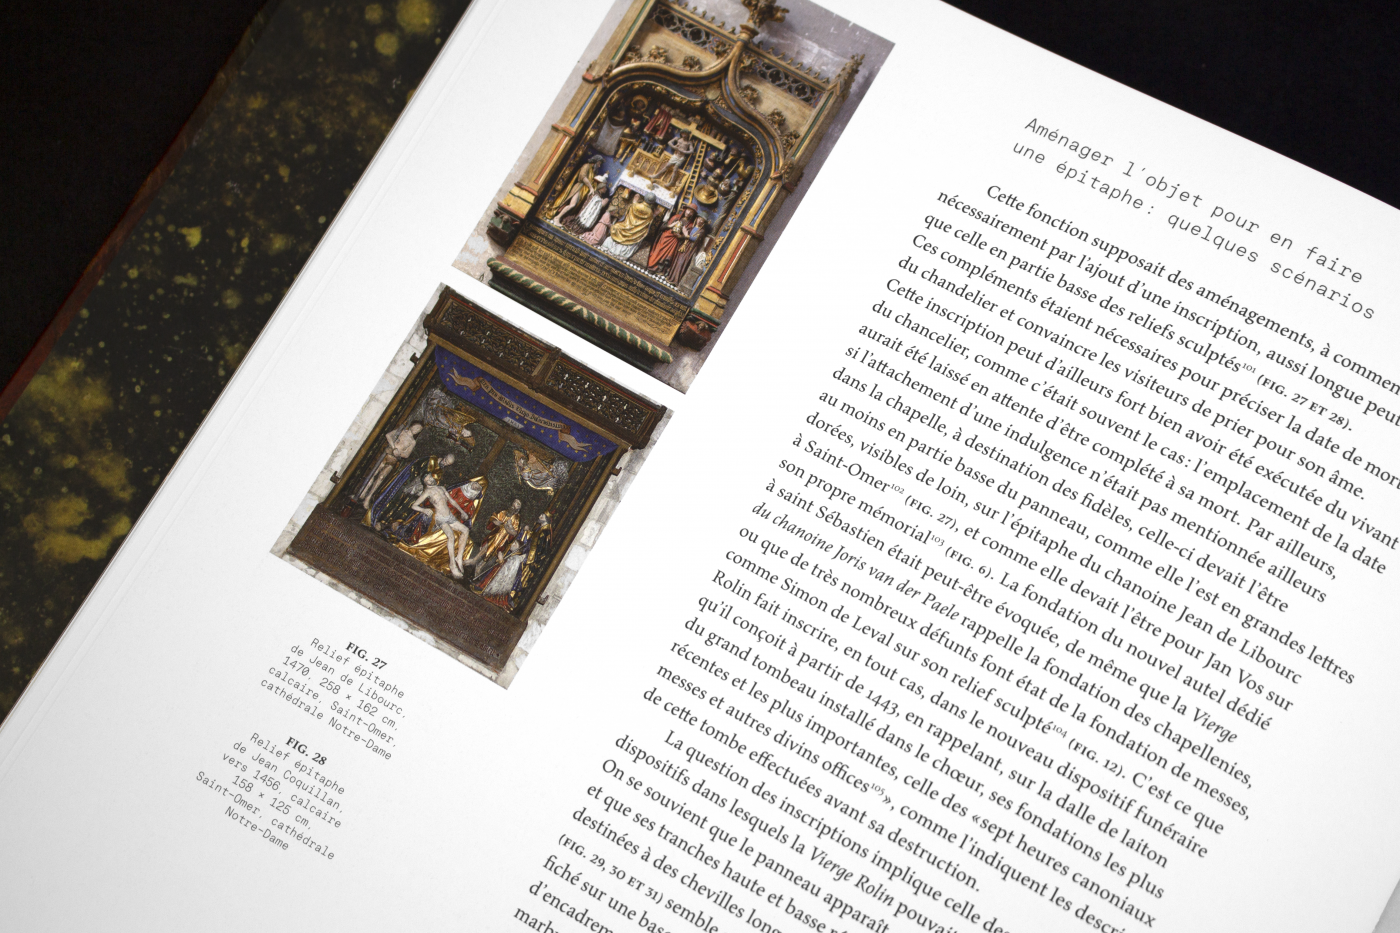 Aménager l'objet pour en faire
une épitaphe : quelques scénarios
Cette fonction supposait des aménagements, à commen
nécessairement par l'ajout d'une inscription, aussi longue peut
que celle en partie basse des reliefs sculptés¹⁰¹ (FIG. 27 ET 28).
Ces compléments étaient nécessaires pour préciser la date de mort
du chandelier et convaincre les visiteurs de prier pour son âme.
Cette inscription peut d'ailleurs fort bien avoir été exécutée du vivant
du chancelier, comme c'était souvent le cas : l'emplacement de la date
aurait été laissé en attente d'être complété à sa mort. Par ailleurs,
si l'attachement d'une indulgence n'était pas mentionnée ailleurs
dans la chapelle, à destination des fidèles, celle-ci devait l'être
au moins en partie basse du panneau, comme elle l'est en grandes lettres
dorées, visibles de loin, sur l'épitaphe du chanoine Jean de Libourc
à Saint-Omer¹⁰² (FIG. 27), et comme elle devait l'être pour Jan Vos sur
son propre mémorial¹⁰³ (FIG. 6). La fondation du nouvel autel dédié
à saint Sébastien était peut-être évoquée, de même que la Vierge
du chanoine Joris van der Paele rappelle la fondation des chapellenies,
ou que de très nombreux défunts font état de la fondation de messes,
comme Simon de Leval sur son relief sculpté¹⁰⁴ (FIG. 12). C'est ce que
Rolin fait inscrire, en tout cas, dans le nouveau dispositif funéraire
qu'il conçoit à partir de 1443, en rappelant, sur la dalle de laiton
du grand tombeau installé dans le chœur, ses fondations les plus
récentes et les plus importantes, celle des « sept heures canoniaux
messes et autres divins offices¹⁰⁵ », comme l'indiquent les descri
de cette tombe effectuées avant sa destruction.
La question des inscriptions implique celle des
dispositifs dans lesquels la Vierge Rolin pouvait
On se souvient que le panneau apparaît
et que ses tranches haute et basse ré
destinées à des chevilles long
(FIG. 29, 30 ET 31) semble
fiché sur une base
d'encadrem
marb
FIG. 27
Relief épitaphe
de Jean de Libourc,
1470, 258 × 162 cm,
calcaire, Saint-Omer,
cathédrale Notre-Dame
FIG. 28
Relief épitaphe
de Jean Coquillan,
vers 1456, calcaire
158 × 125 cm,
Saint-Omer, cathédrale
Notre-Dame